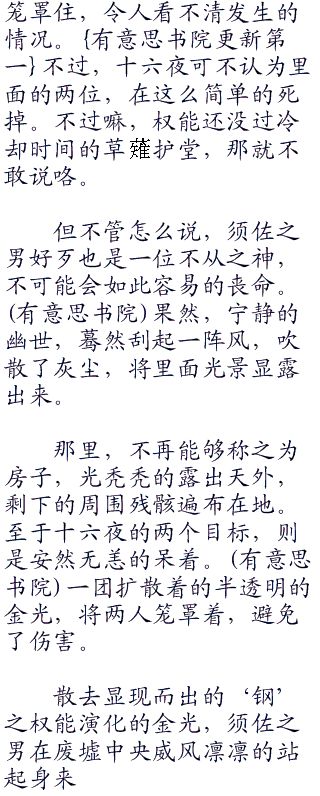 笼罩住，令人看不清发生的
情况。{有意思书院更新第
一}不过，十六夜可不认为里
面的两位，在这么简单的死
掉。不过嘛，权能还没过冷
却时间的草薙护堂，那就不
敢说咯。
但不管怎么说，须佐之
男好歹也是一位不从之神，
不可能会如此容易的丧命。
(有意思书院)果然，宁静的
幽世，蓦然刮起一阵风，吹
散了灰尘，将里面光景显露
出来。
那里，不再能够称之为
房子，光秃秃的露出天外，
剩下的周围残骸遍布在地。
至于十六夜的两个目标，则
是安然无恙的呆着。(有意思
书院)一团扩散着的半透明的
金光，将两人笼罩着，避免
了伤害。
散去显现而出的‘钢’
之权能演化的金光，须佐之
男在废墟中央威风凛凛的站
起身来